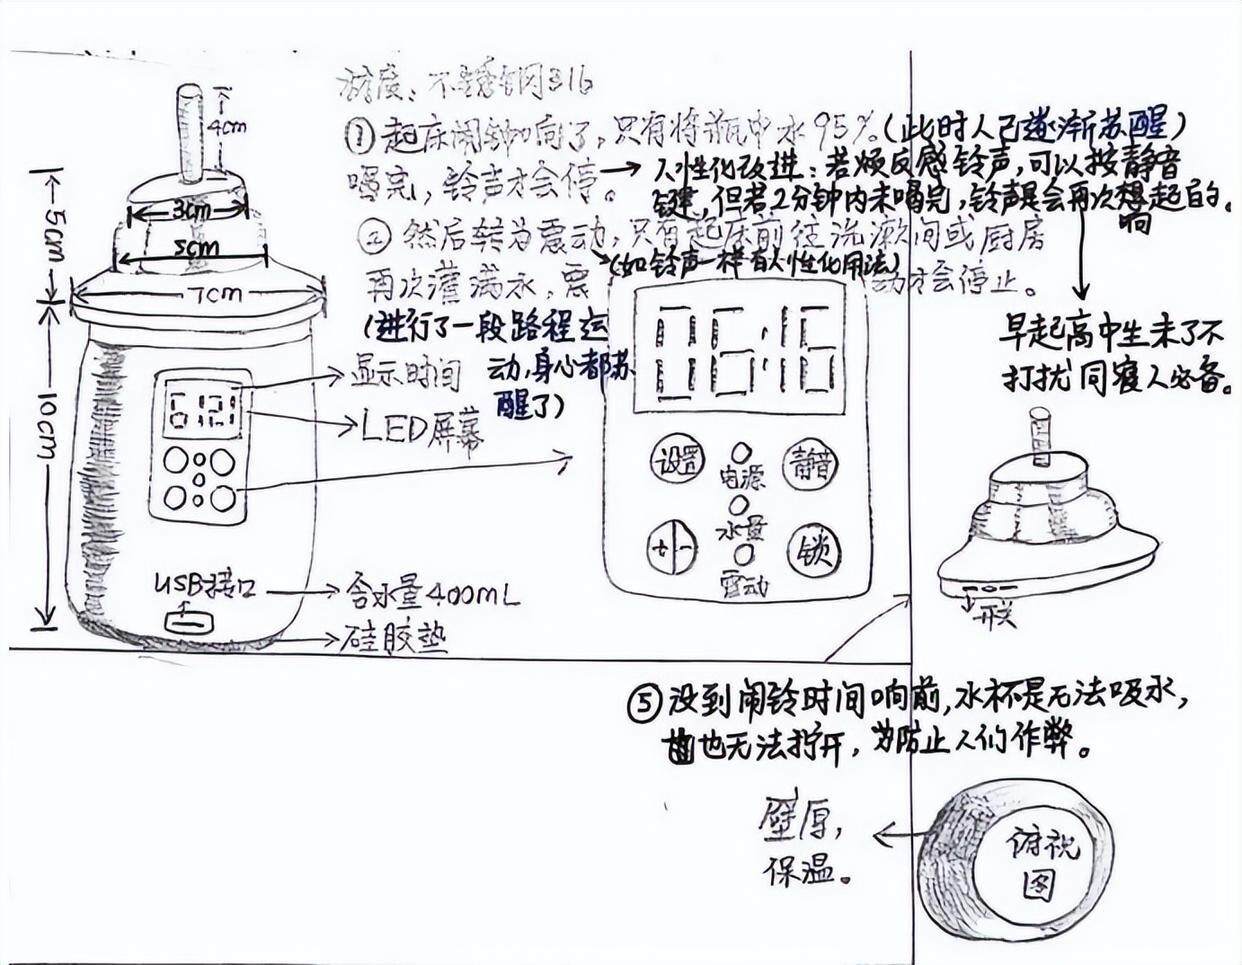 材度：不锈钢316
①起床闹钟如响了，只有将瓶中水95%（此时人已逐渐苏醒）
喝完，铃声才会停。
人性化改进：若烦反感铃声，可以按静音
键，但若2分钟内未喝完，铃声是会再次想起的。
响
②然后转为震动，只有起床前往洗漱间或厨房
再次灌满水，震动才会停止。
（如铃声一样有人性化用法）
（进行了一段路程运
动，身心都苏
醒了）
早起高中生未了不
打扰同寝人必备。
4cm
3cm
5cm
7cm
5cm
10cm
显示时间
LED屏幕
USB接口
含水量400mL
硅胶垫
06:16
设置
静音
电源
水量
+-
锁
震动
开关
⑤没到闹铃时间响前，水杯是无法吸水，
也无法拧开，为防止人们作弊。
壁厚，
保温。
俯视
图